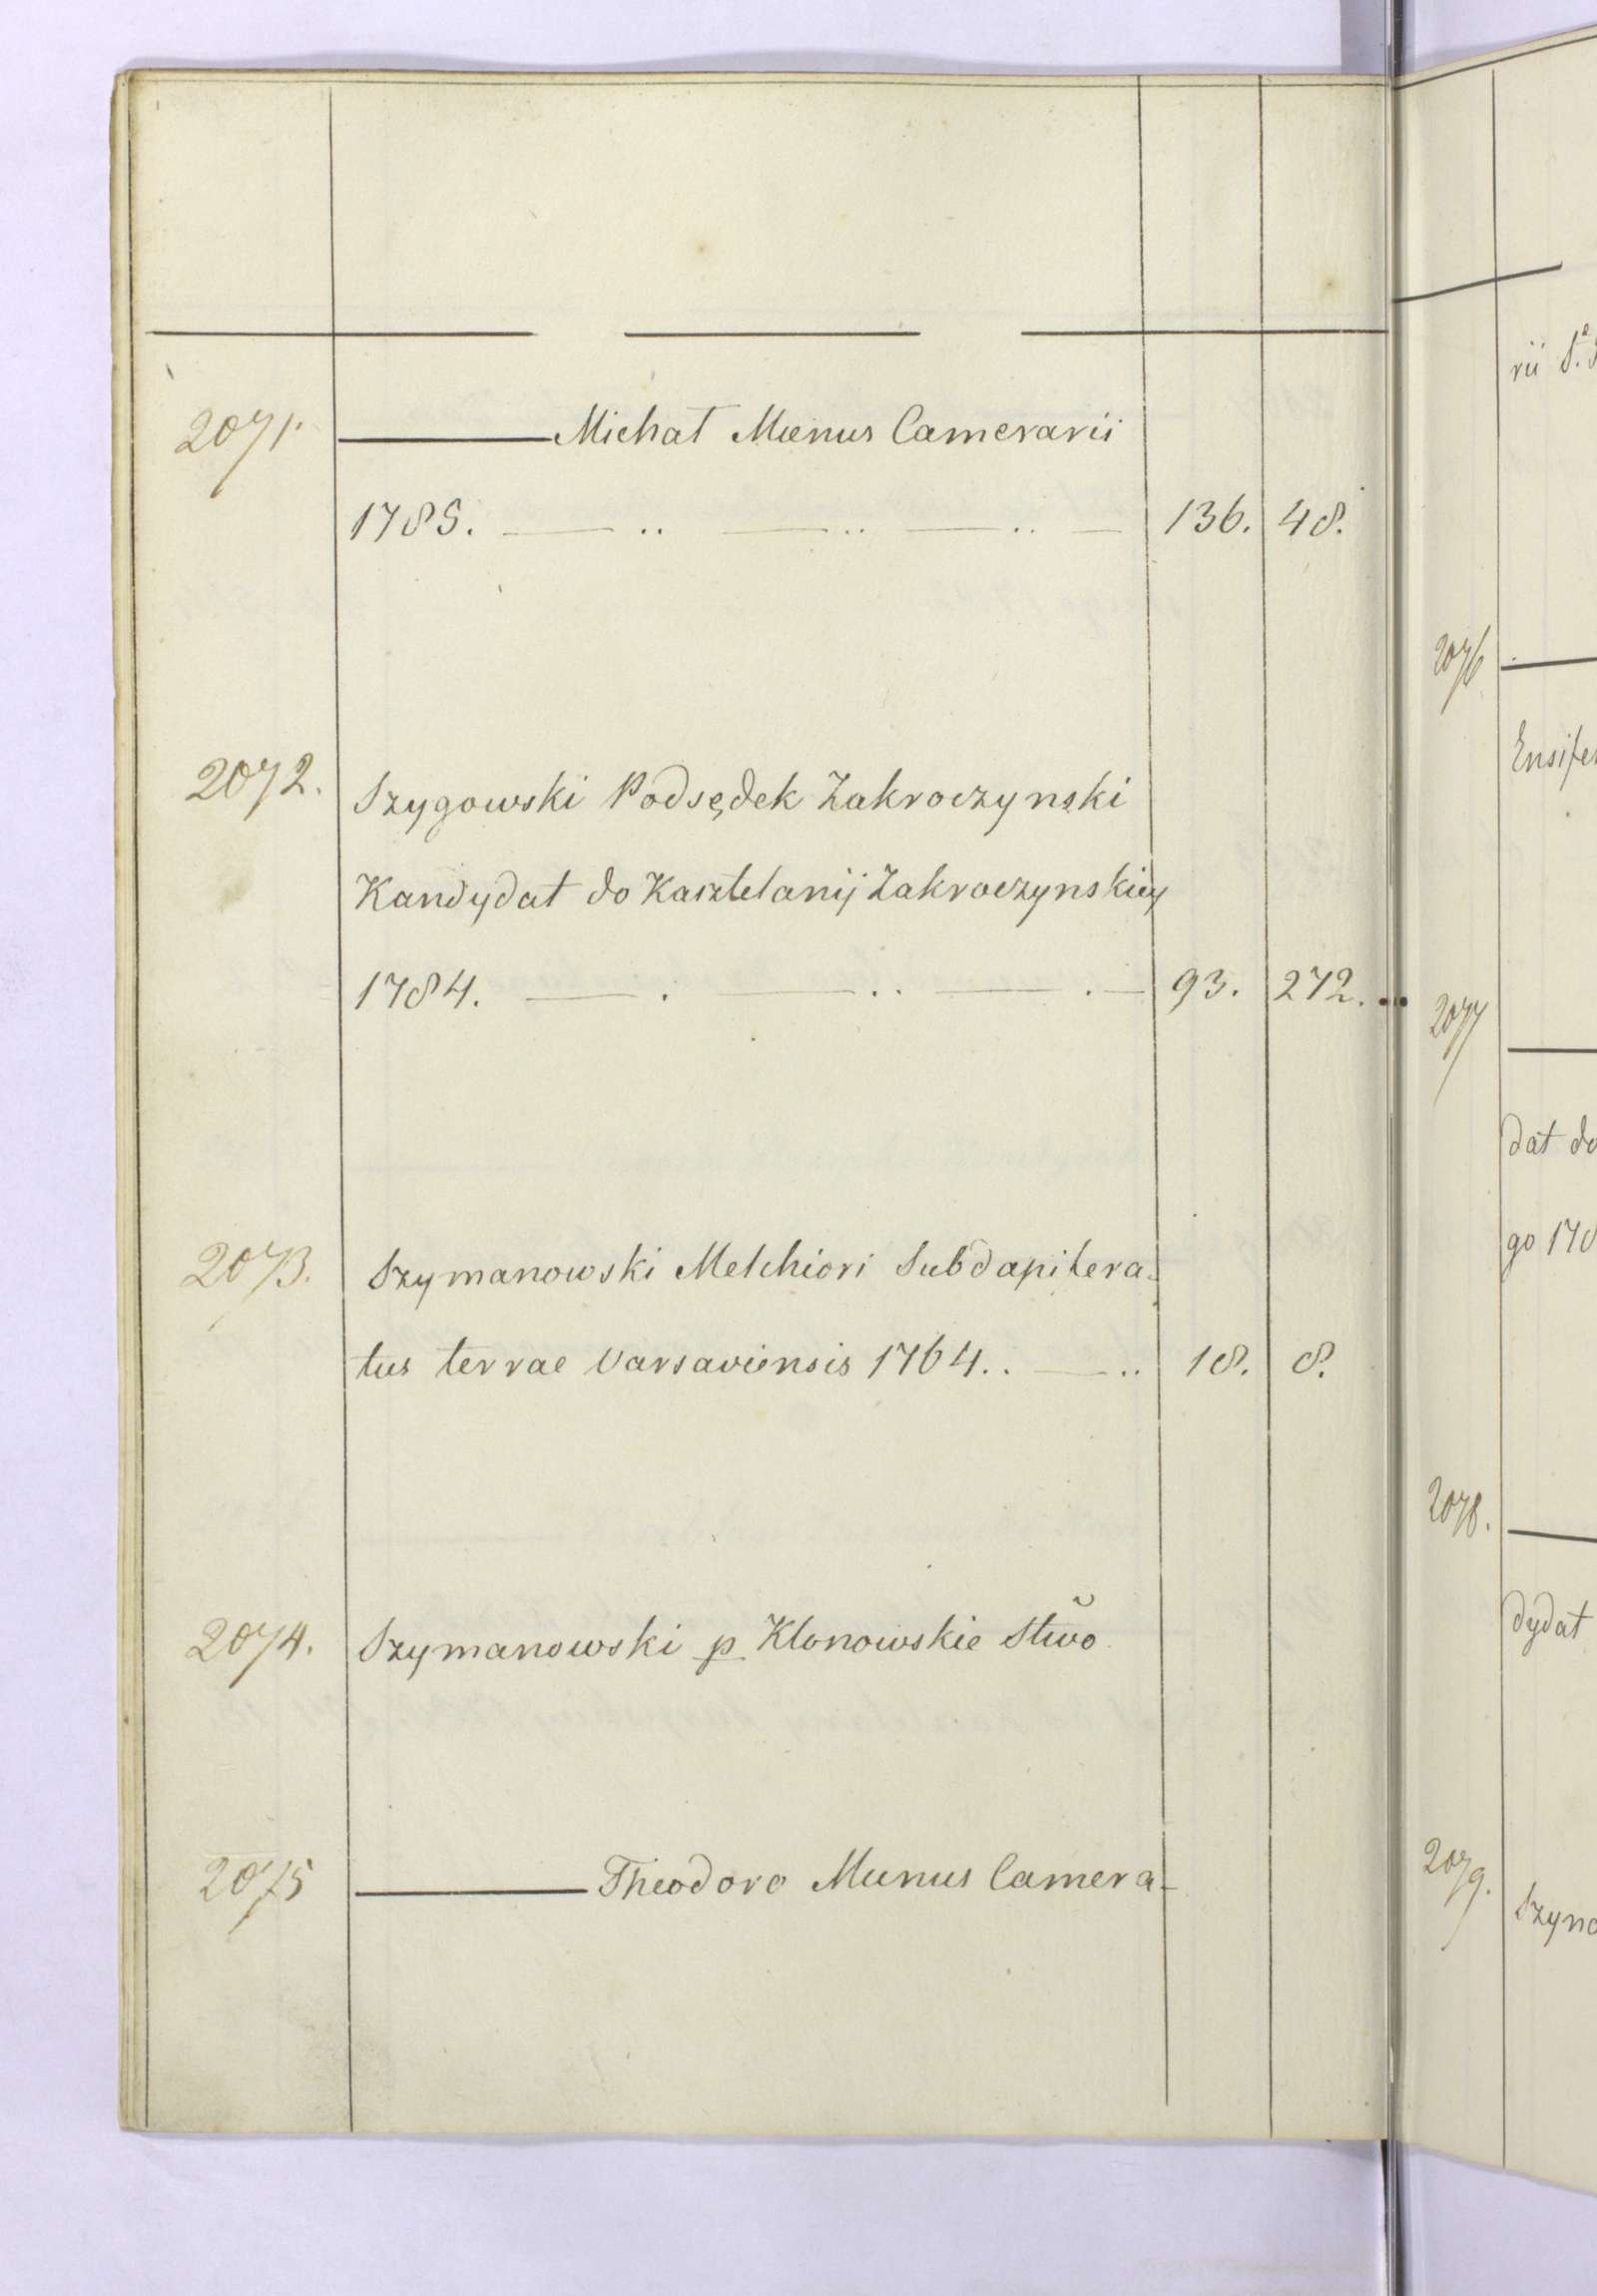 2071. ——— Michał Munus Camerarii
1785. — .. — .. — .. — 136. 48.
2072. Szygowski Podsędek Zakroczynski
Kandydat do Kasztelanij Zakroczynskiey
1784. — . — .. — . — 93. 272.
2073. Szymanowski Melchiori Subdapifera-
tus terrae Varsaviensis 1764.. — .. 18. 8.
2074. Szymanowski p. Klonowskie Stwo
2075 ——— Theodoro Munus Camera-
rii
2076
Ensifer
2077
dat do
go 178
2078.
dydat
2079.
Szyno